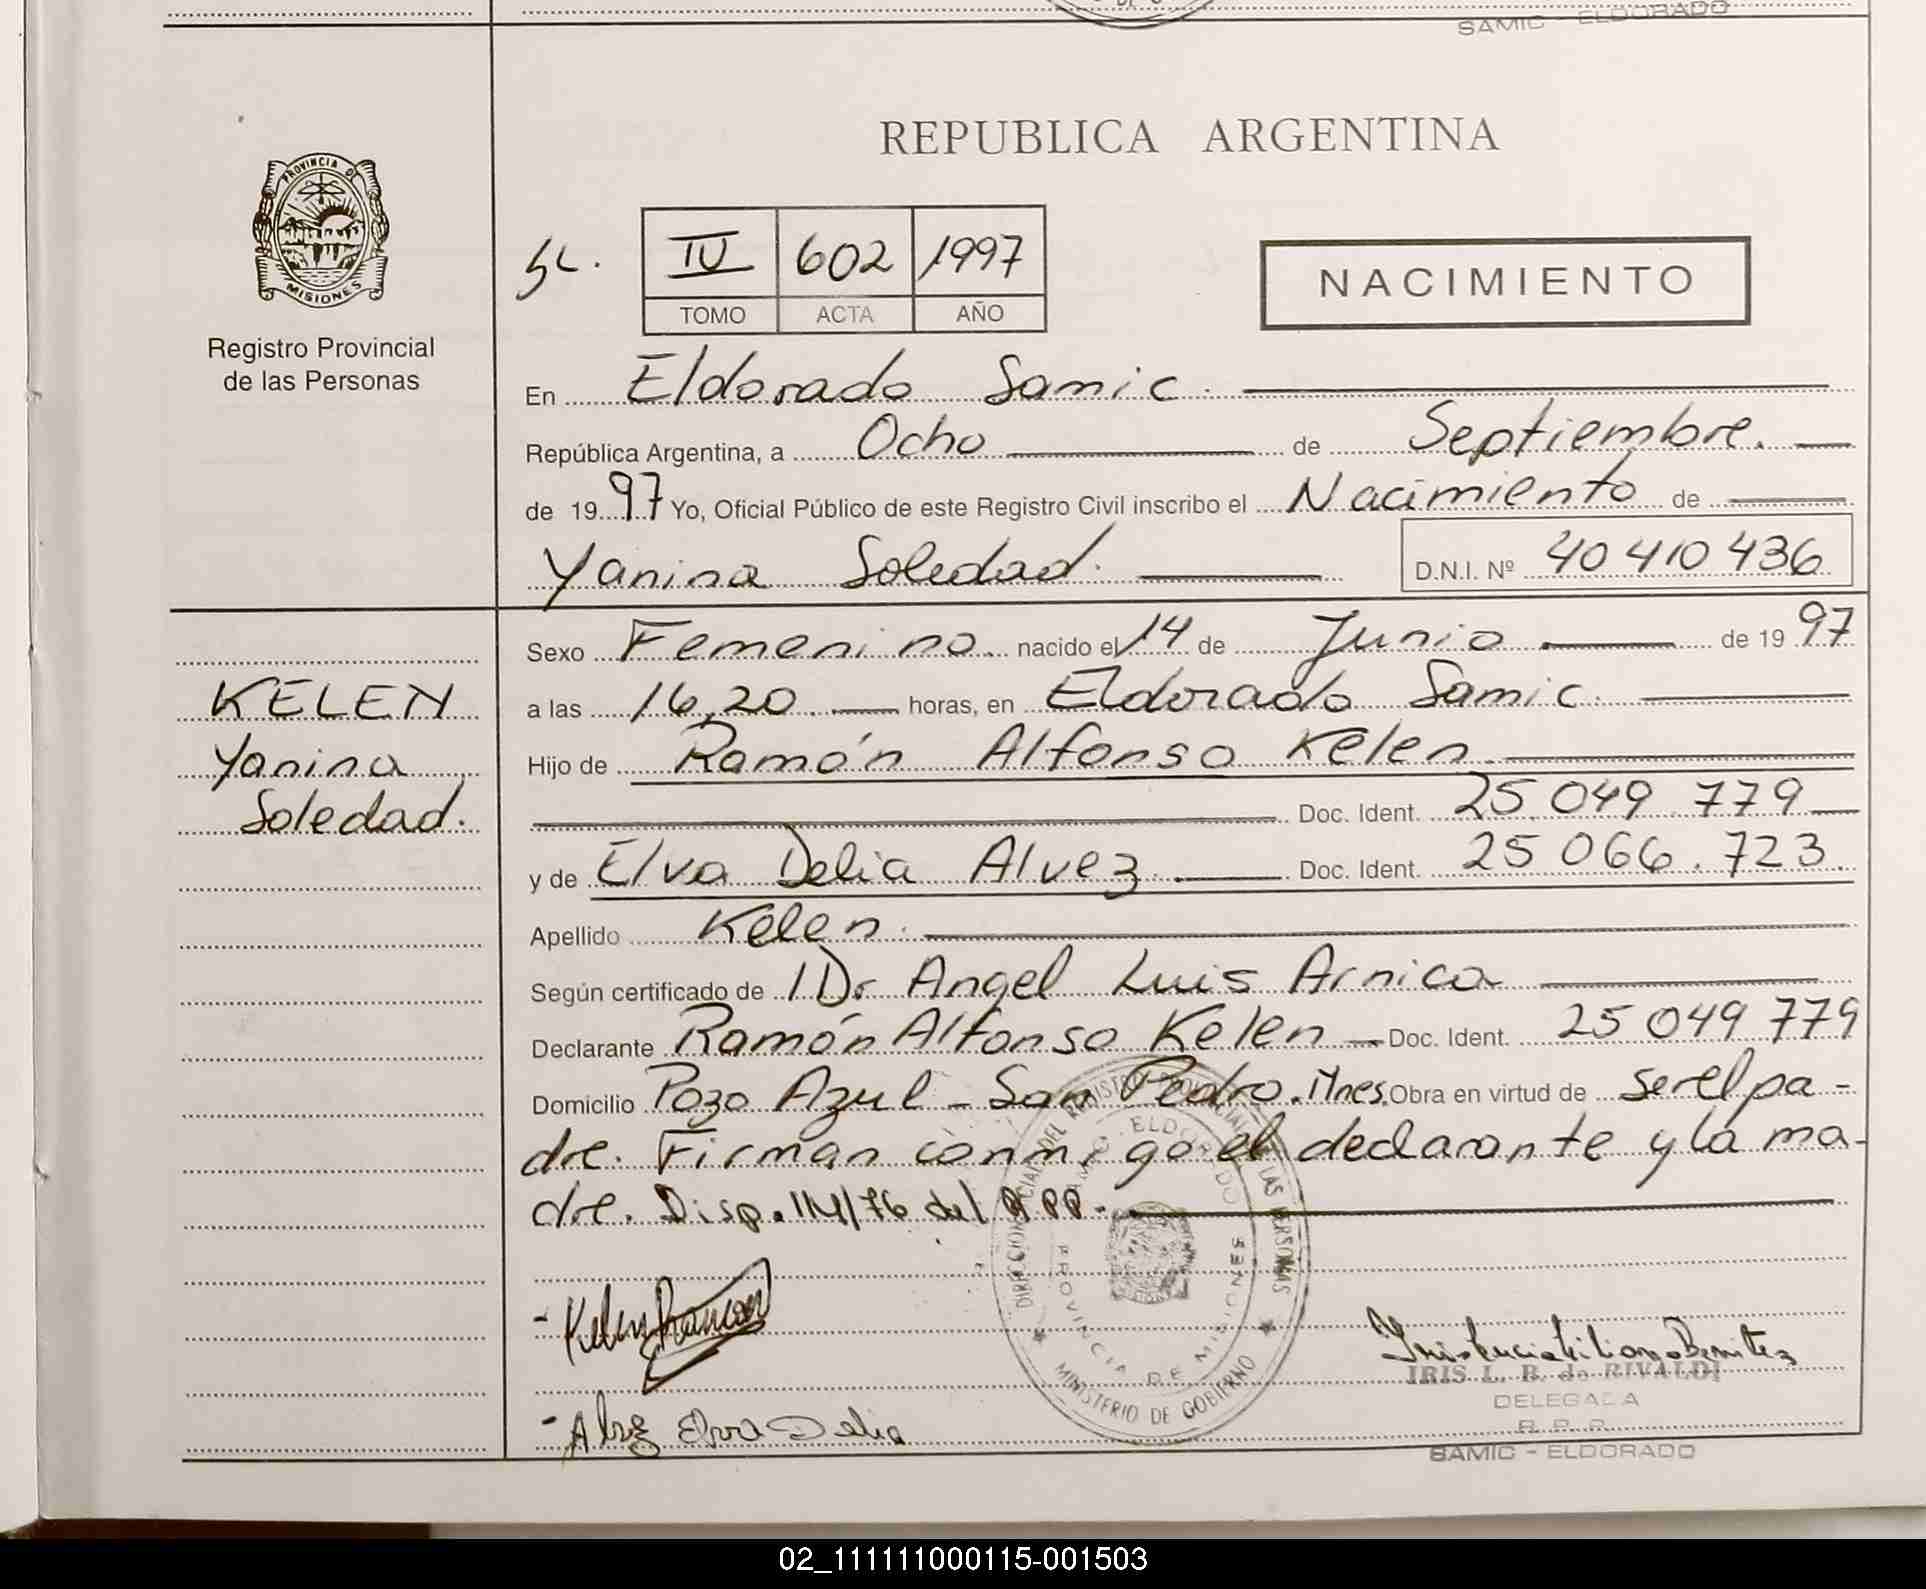 SAMIC - ELDORADO
REPUBLICA ARGENTINA
PROVINCIA DE
MISIONES
Registro Provincial
de las Personas
IV 602 1997
TOMO ACTA AÑO
NACIMIENTO
En Eldorado Samic.
República Argentina, a Ocho de Septiembre.
de 1997 Yo, Oficial Público de este Registro Civil inscribo el Nacimiento de
Yanina Soledad. D.N.I. Nº 40 410 436
KELEN
Yanina
Soledad.
Sexo Femenino. nacido el 14 de Junio de 1997
a las 16,20. horas, en Eldorado Samic.
Hijo de Ramón Alfonso Kelen.
Doc. Ident. 25.049.779
y de Elva Delia Alvez. Doc. Ident. 25 066.723
Apellido Kelen.
Según certificado de Dr Angel Luis Arnica
Declarante Ramón Alfonso Kelen Doc. Ident. 25 049 779
Domicilio Pozo Azul - San Pedro. Mnes. Obra en virtud de ser el pa-
dre. Firman conmigo el declarante y la ma-
dre. Disp. 114/76 del RPP.-
DIRECCION PROVINCIAL DEL REGISTRO PROVINCIAL DE LAS PERSONAS
MINISTERIO DE GOBIERNO
SAMIC ELDORADO
PROVINCIA DE MISIONES
- Kelen Ramon
IRIS L. B. de RIVALDI
DELEGADA
R. P. P.
SAMIC - ELDORADO
- Alvez Elva Delia
02_111111000115-001503